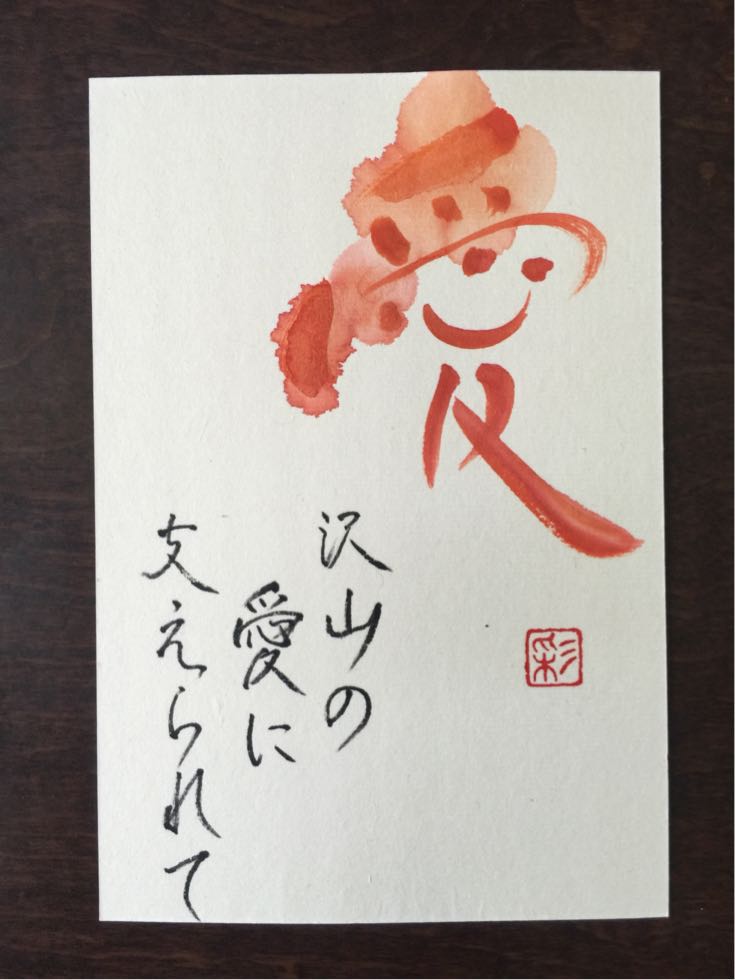 愛
沢山の
愛に
支えられて
彩